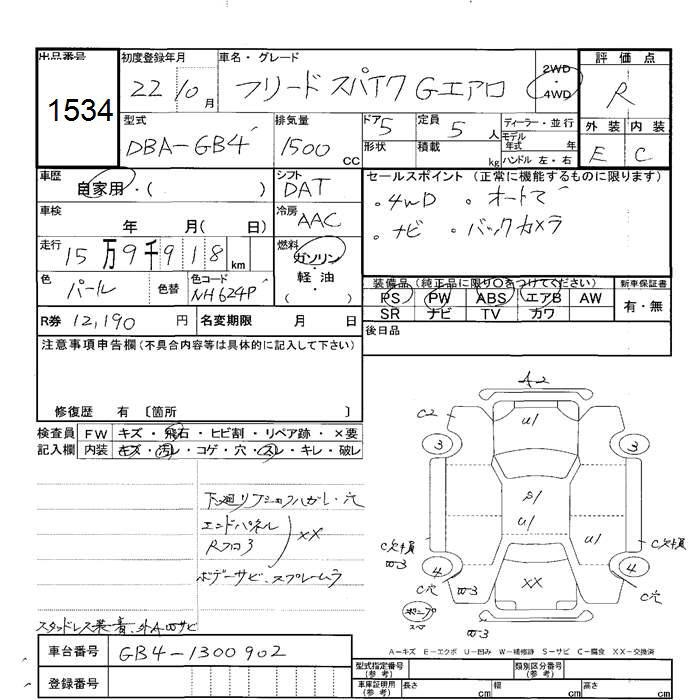 出品番号
1534
初度登録年月
22 10 月
車名・グレード
フリードスパイク Gエアロ
2WD
・
4WD
評価点
R
外装 内装
E C
型式
DBA-GB4
排気量
1500 CC
ドア 5
形状
定員 5 人
積載 kg
ディーラー・並行
モデル
年式 年
ハンドル 左・右
車歴
自家用・( )
シフト
DAT
車検
年 月( 日)
冷房
AAC
走行
15万9千918 km
燃料
ガソリン
軽・油
( )
色
パール
色替
色コード
NH624P
R券 12,190 円
名変期限 月 日
セールスポイント (正常に機能するものに限ります)
・4WD ・オートマ
・ナビ ・バックカメラ
装備品(純正品に限り○をつけてください)
PS PW ABS エアB AW
SR ナビ TV カワ
新車保証書
有・無
後日品
注意事項申告欄(不具合内容等は具体的に記入して下さい)
修復歴 有 〔箇所 〕
検査員
記入欄
FW キズ・飛石・ヒビ割・リペア跡・×要
内装 キズ・汚レ・コゲ・穴・スレ・キレ・破レ
エンドパネル
Rフロア
XX
スタッドレス装着、外Aωサビ
A2
C2
U1
3
3
S1
U1
U1
C欠損
ω3
C欠損
4
4
C穴
ω3
XX
C穴
スペア
ω3
A-キズ E-エクボ U-凹み W-補修跡 S-サビ C-腐食 XX-交換済
車台番号
GB4-1300902
登録番号
型式指定番号
(参考)
類別区分番号
(参考)
車庫証明用
(参考)
長さ cm
幅 cm
高さ cm